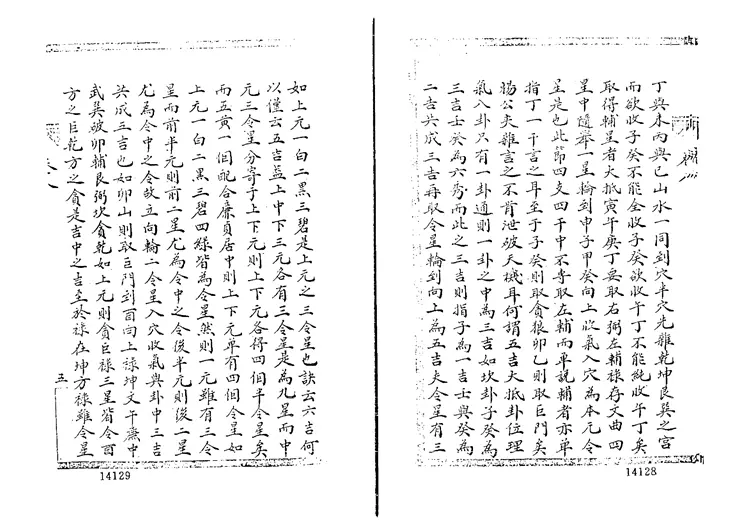 丁與未丙與巳山水一同到穴半穴先雜乾坤艮巽之宮
而欲收子癸不能全收子癸欲收午丁不能純收午丁矣
取得輔星者大抵寅午庚丁要取右弼左輔祿存文曲四
星中隨舉一星輪到申子甲癸向上收氣入穴為本元令
星是也此節四支四干中不專取左輔而單說輔者亦單
指丁一干言之耳至于子癸則取貪狼卯乙則取巨門矣
楊公夫雜言之不肯泄破天機耳何謂五吉大抵卦位理
氣八卦只有一卦通則一卦之中為三吉如坎卦子癸為
三吉壬癸為六秀而此之三吉則指子為一吉壬與癸為
二吉共成三吉再取令星輪到向上為五吉夫令星有三
14128
如上元一白二黑三碧是上元之三令星也訣云六吉何
以僅云五吉蓋上中下三元各有三令星是為九星而中
元三令星分寄于上下元則上下元各得四個半令星矣
而五黃一個配合廉貞居中則上下元單有四個令星如
上元一白二黑三碧四綠皆為令星然則一元雖有三令
星而前半元則前二星尤為令中之令後半元則後二星
尤為令中之令故立向輪二令星入穴收氣與卦中三吉
共成三吉也如卯山則取巨門到酉向上祿坤文午廉中
武巽破卯輔艮弼坎貪乾如上元則貪巨祿三星皆令酉
方之巨乾方之貪是吉中之吉至於祿在坤方祿雖令星
五
14129